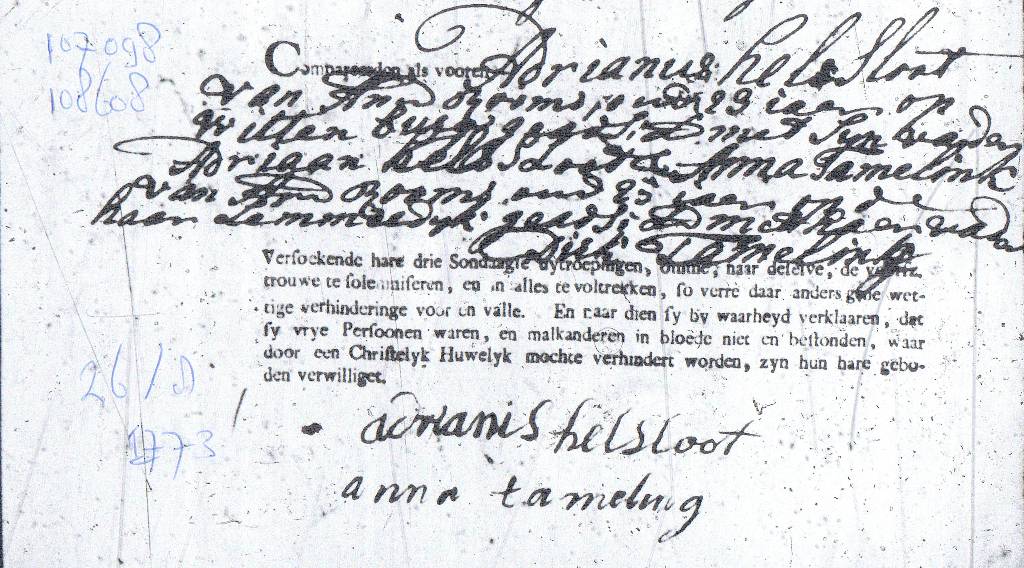 107098
108608
Compareerden als vooren Adrianus helsloot
van Amd Rooms oud 29 iaar op
Witten burg geads: met Syn vader
Adriaan helsloot & Anna Tamelink
van Amd Rooms oud 25 iaar op de
haar Lemmer dyk geads:
Dirk Tamelink
Versoekende hare drie Sondaagse uytroepingen, omme, naar deselve, de voorsz.
trouwe te solemniseren, en in alles te voltrekken, so verre daar anders gene wet-
tige verhinderinge voor en valle. En naar dien sy by waarheyd verklaaren, dat
sy vrye Persoonen waren, en malkanderen in bloede niet en bestonden, waar
door een Christelyk Huwelyk mochte verhindert worden, zyn hun hare gebo-
den verwilliget.
26/D
1773
adrianis helsloot
anna tameling